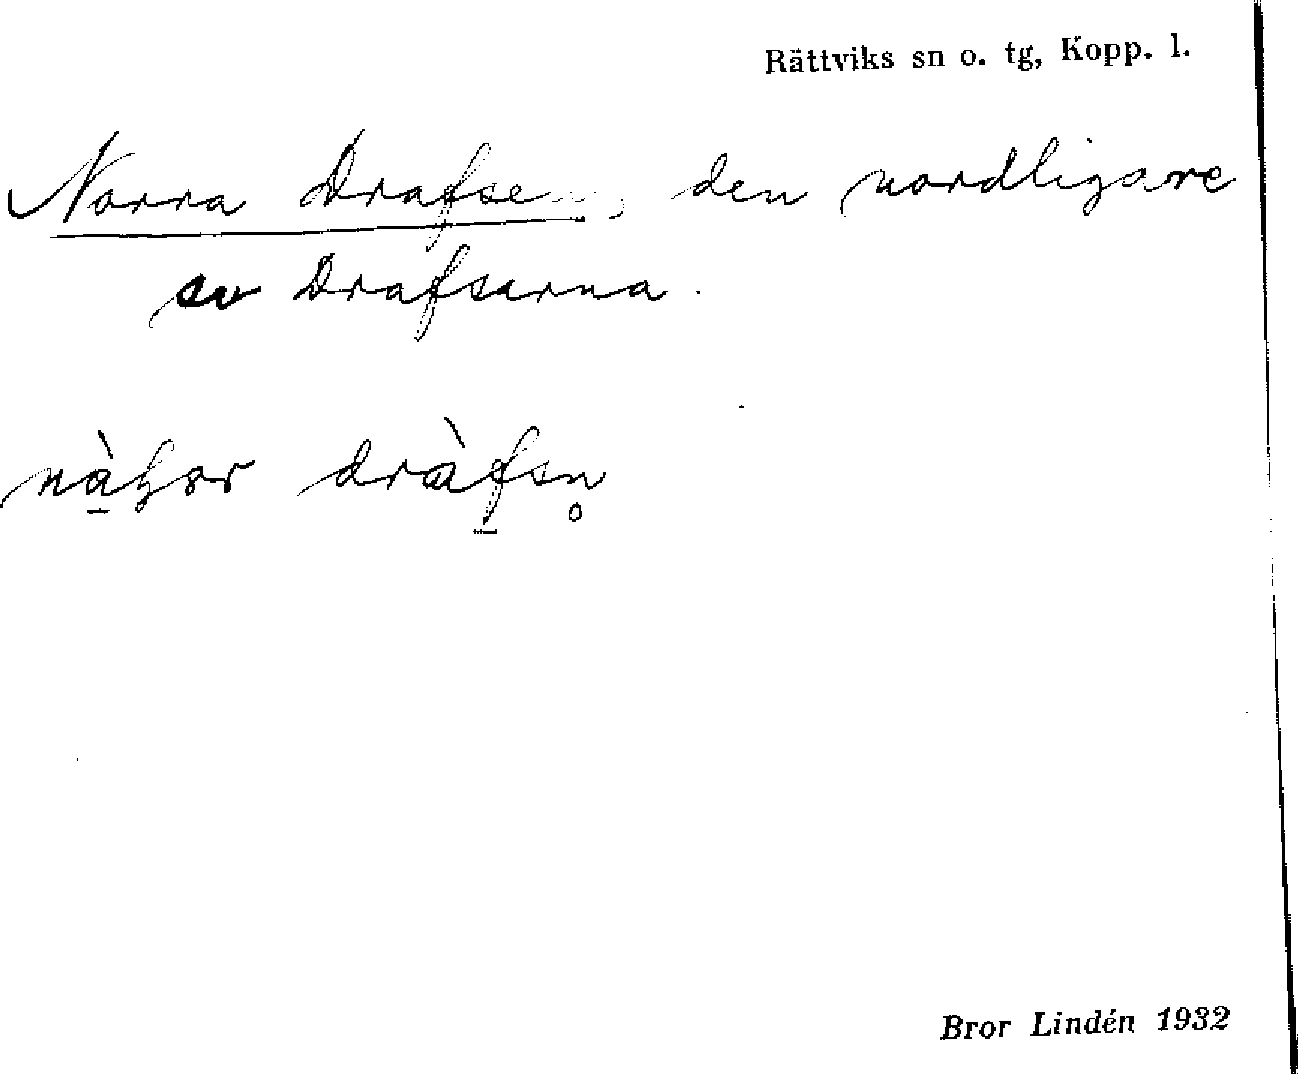 Rättviks sn o. tg, Kopp. l.
Norra Drafsen, den nordligare
av Drafsarna.
dràfsn̥
Bror Lindén 1932